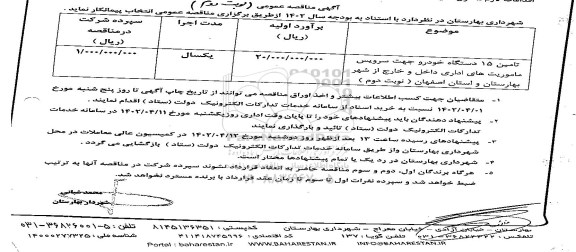 آگهی مناقصه عمومی (نوبت دوم)
شهرداری بهارستان در نظر دارد با استناد به بودجه سال ۱۴۰۲ از طریق برگزاری مناقصه عمومی انتخاب پیمانکار نماید.
موضوع
برآورد اولیه (ریال)
مدت اجرا
سپرده شرکت در مناقصه (ریال)
تامین ۱۵ دستگاه خودرو جهت سرویس ماموریت های اداری داخل و خارج از شهر بهارستان و استان اصفهان ( نوبت دوم )
۲۰/۰۰۰/۰۰۰/۰۰۰
یکسال
۱/۰۰۰/۰۰۰/۰۰۰
۱- متقاضیان جهت کسب اطلاعات بیشتر و اخذ اوراق مناقصه می توانند از تاریخ چاپ آگهی تا روز پنج شنبه مورخ
۱۴۰۲/۰۴/۰۱ نسبت به خرید اسناد از سامانه خدمات تدارکات الکترونیک دولت (ستاد) اقدام نمایند.
۲- پیشنهاد دهندگان باید پیشنهادهای خود را تا پایان وقت اداری روز یکشنبه مورخ ۱۴۰۲/۰۴/۱۱ در سامانه خدمات
تدارکات الکترونیک دولت (ستاد) تائید و بارگذاری نمایند.
۳- پیشنهادهای رسیده ساعت ۱۳ بعد از ظهر روز دوشنبه مورخ ۱۴۰۲/۰۴/۱۲ در کمیسیون عالی معاملات در محل
شهرداری بهارستان و از طریق سامانه خدمات تدارکات الکترونیک دولت (ستاد) بازگشایی می گردد.
۴- شهرداری بهارستان در رد یک یا تمام پیشنهادها مختار است.
۵- هرگاه برندگان اول، دوم و سوم مناقصه حاضر به انعقاد قرارداد نشوند سپرده شرکت در مناقصه آنها به ترتیب
ضبط خواهد شد و سپرده نفرات اول تا سوم تا زمان عقد قرارداد با برنده مسترد نخواهد شد.
شهردار بهارستان
شهرداری بهارستان
کدپستی: ۸۱۴۵۱۳۶۳۵۱
تلفن: ۵-۳۶۸۲۶۰۰۱-۰۳۱
تلفن گویا: ۱۳۷
Portal : baharestan.ir
http://WWW.BAHARESTAN.IR
INFO@BAHARESTAN.IR